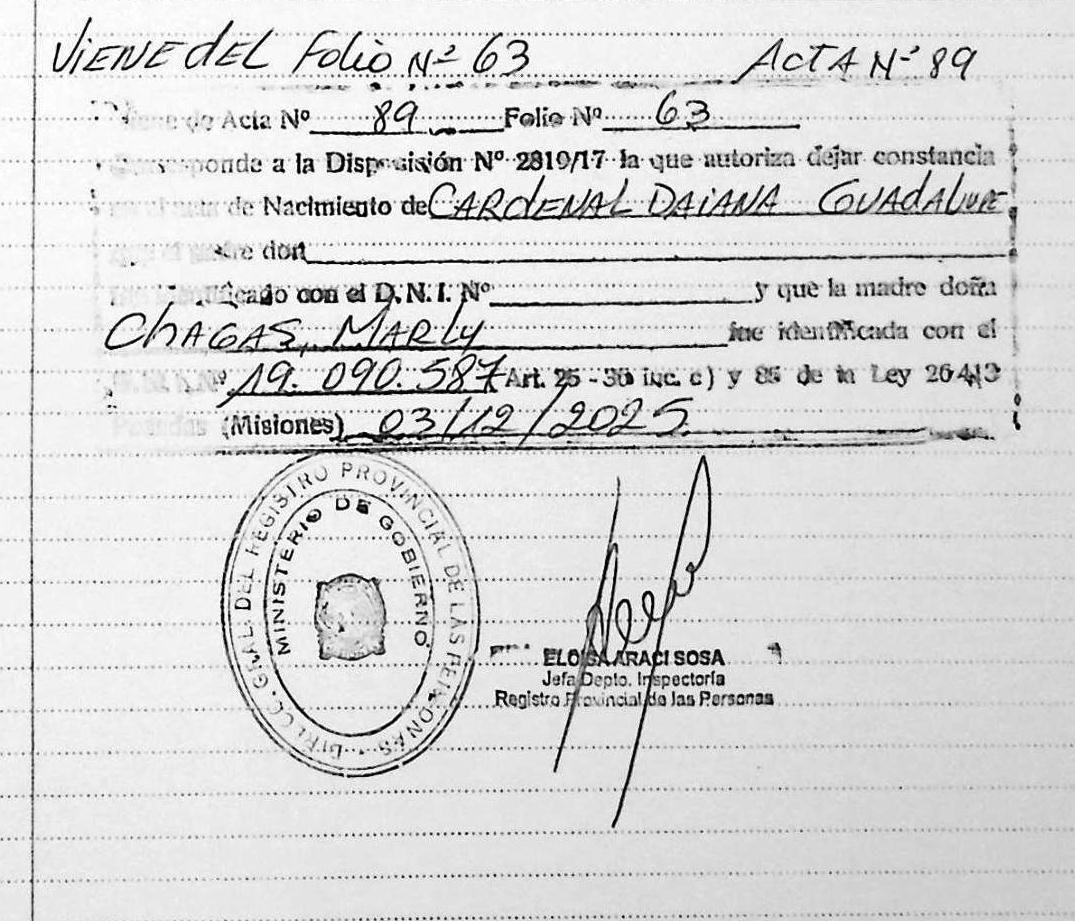 VIENE DEL Folio Nº 63 ACTA Nº 89
Viene de Acta Nº 89 Folio Nº 63
Corresponde a la Disposición Nº 2819/17 la que autoriza dejar constancia
en el acta de Nacimiento de CARDENAL DAIANA GUADALUPE
que el padre don
fue identificado con el D.N.I. Nº y que la madre doña
CHAGAS, MARLY fue identificada con el
Nº 19.090.587 Art. 25 - 36 inc. c) y 85 de la Ley 26413
Posadas (Misiones) 03/12/2025
DIRECC. GRAL. DEL REGISTRO PROVINCIAL DE LAS PERSONAS
MINISTERIO DE GOBIERNO
ELOISA ARACI SOSA
Jefa Depto. Inspectoría
Registro Provincial de las Personas